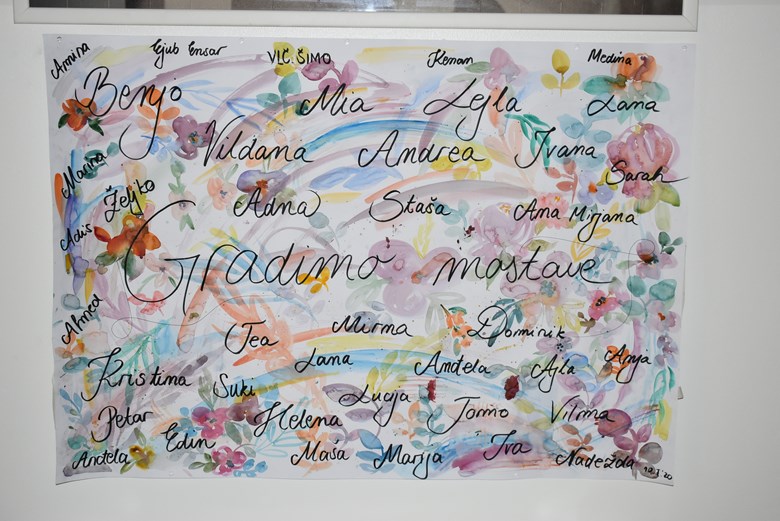 Armina Ejub Ensar VLČ. ŠIMO Kenan Medina
Benjo Mia Lejla Lana
Vildana Andrea Ivana
Marina Sarah
Željko Adna Staša Ana Mirjana
Adis
Gradimo mostove
Ahmed
Tea Mirma Dominik
Kristina Lana Anđela Ajla Anja
Suki Lucija
Petar Helena Tomo Vilma
Edin
Anđela Maša Marija Iva Nadežda